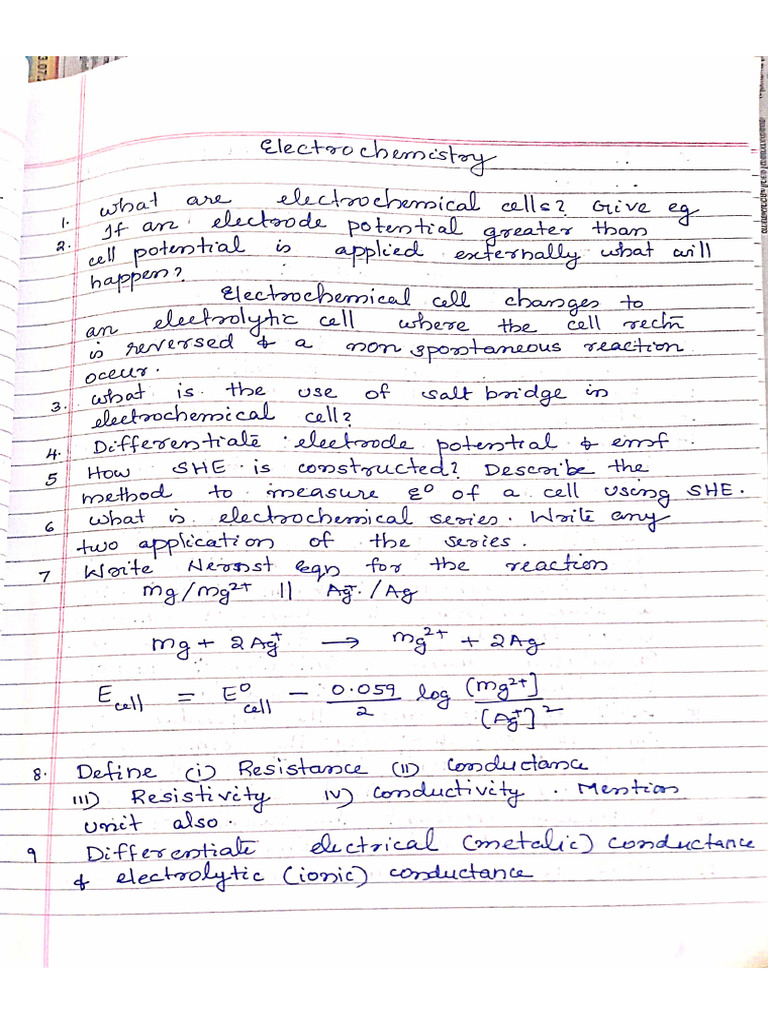 Electrochemistry
1. What are electrochemical cells? Give eg
2. If an electrode potential greater than
cell potential is applied externally what will
happen?
Electrochemical cell changes to
an electrolytic cell where the cell rectn
is reversed & a non spontaneous reaction
occur.
3. What is the use of salt bridge in
electrochemical cell?
4. Differentiate electrode potential & emf.
5 How SHE is constructed? Describe the
method to measure ε⁰ of a cell using SHE.
6 What is electrochemical series. Write any
two application of the series.
7 Write Nernst eqn for the reaction
Mg/Mg²⁺ || Ag⁺/Ag
Mg + 2Ag⁺ → Mg²⁺ + 2Ag
E cell = E⁰ cell - 0.059/2 log [Mg²⁺]/[Ag⁺]²
8. Define (i) Resistance (ii) conductance
iii) Resistivity iv) conductivity. Mention
unit also.
9 Differentiate electrical (metalic) conductance
& electrolytic (ionic) conductance